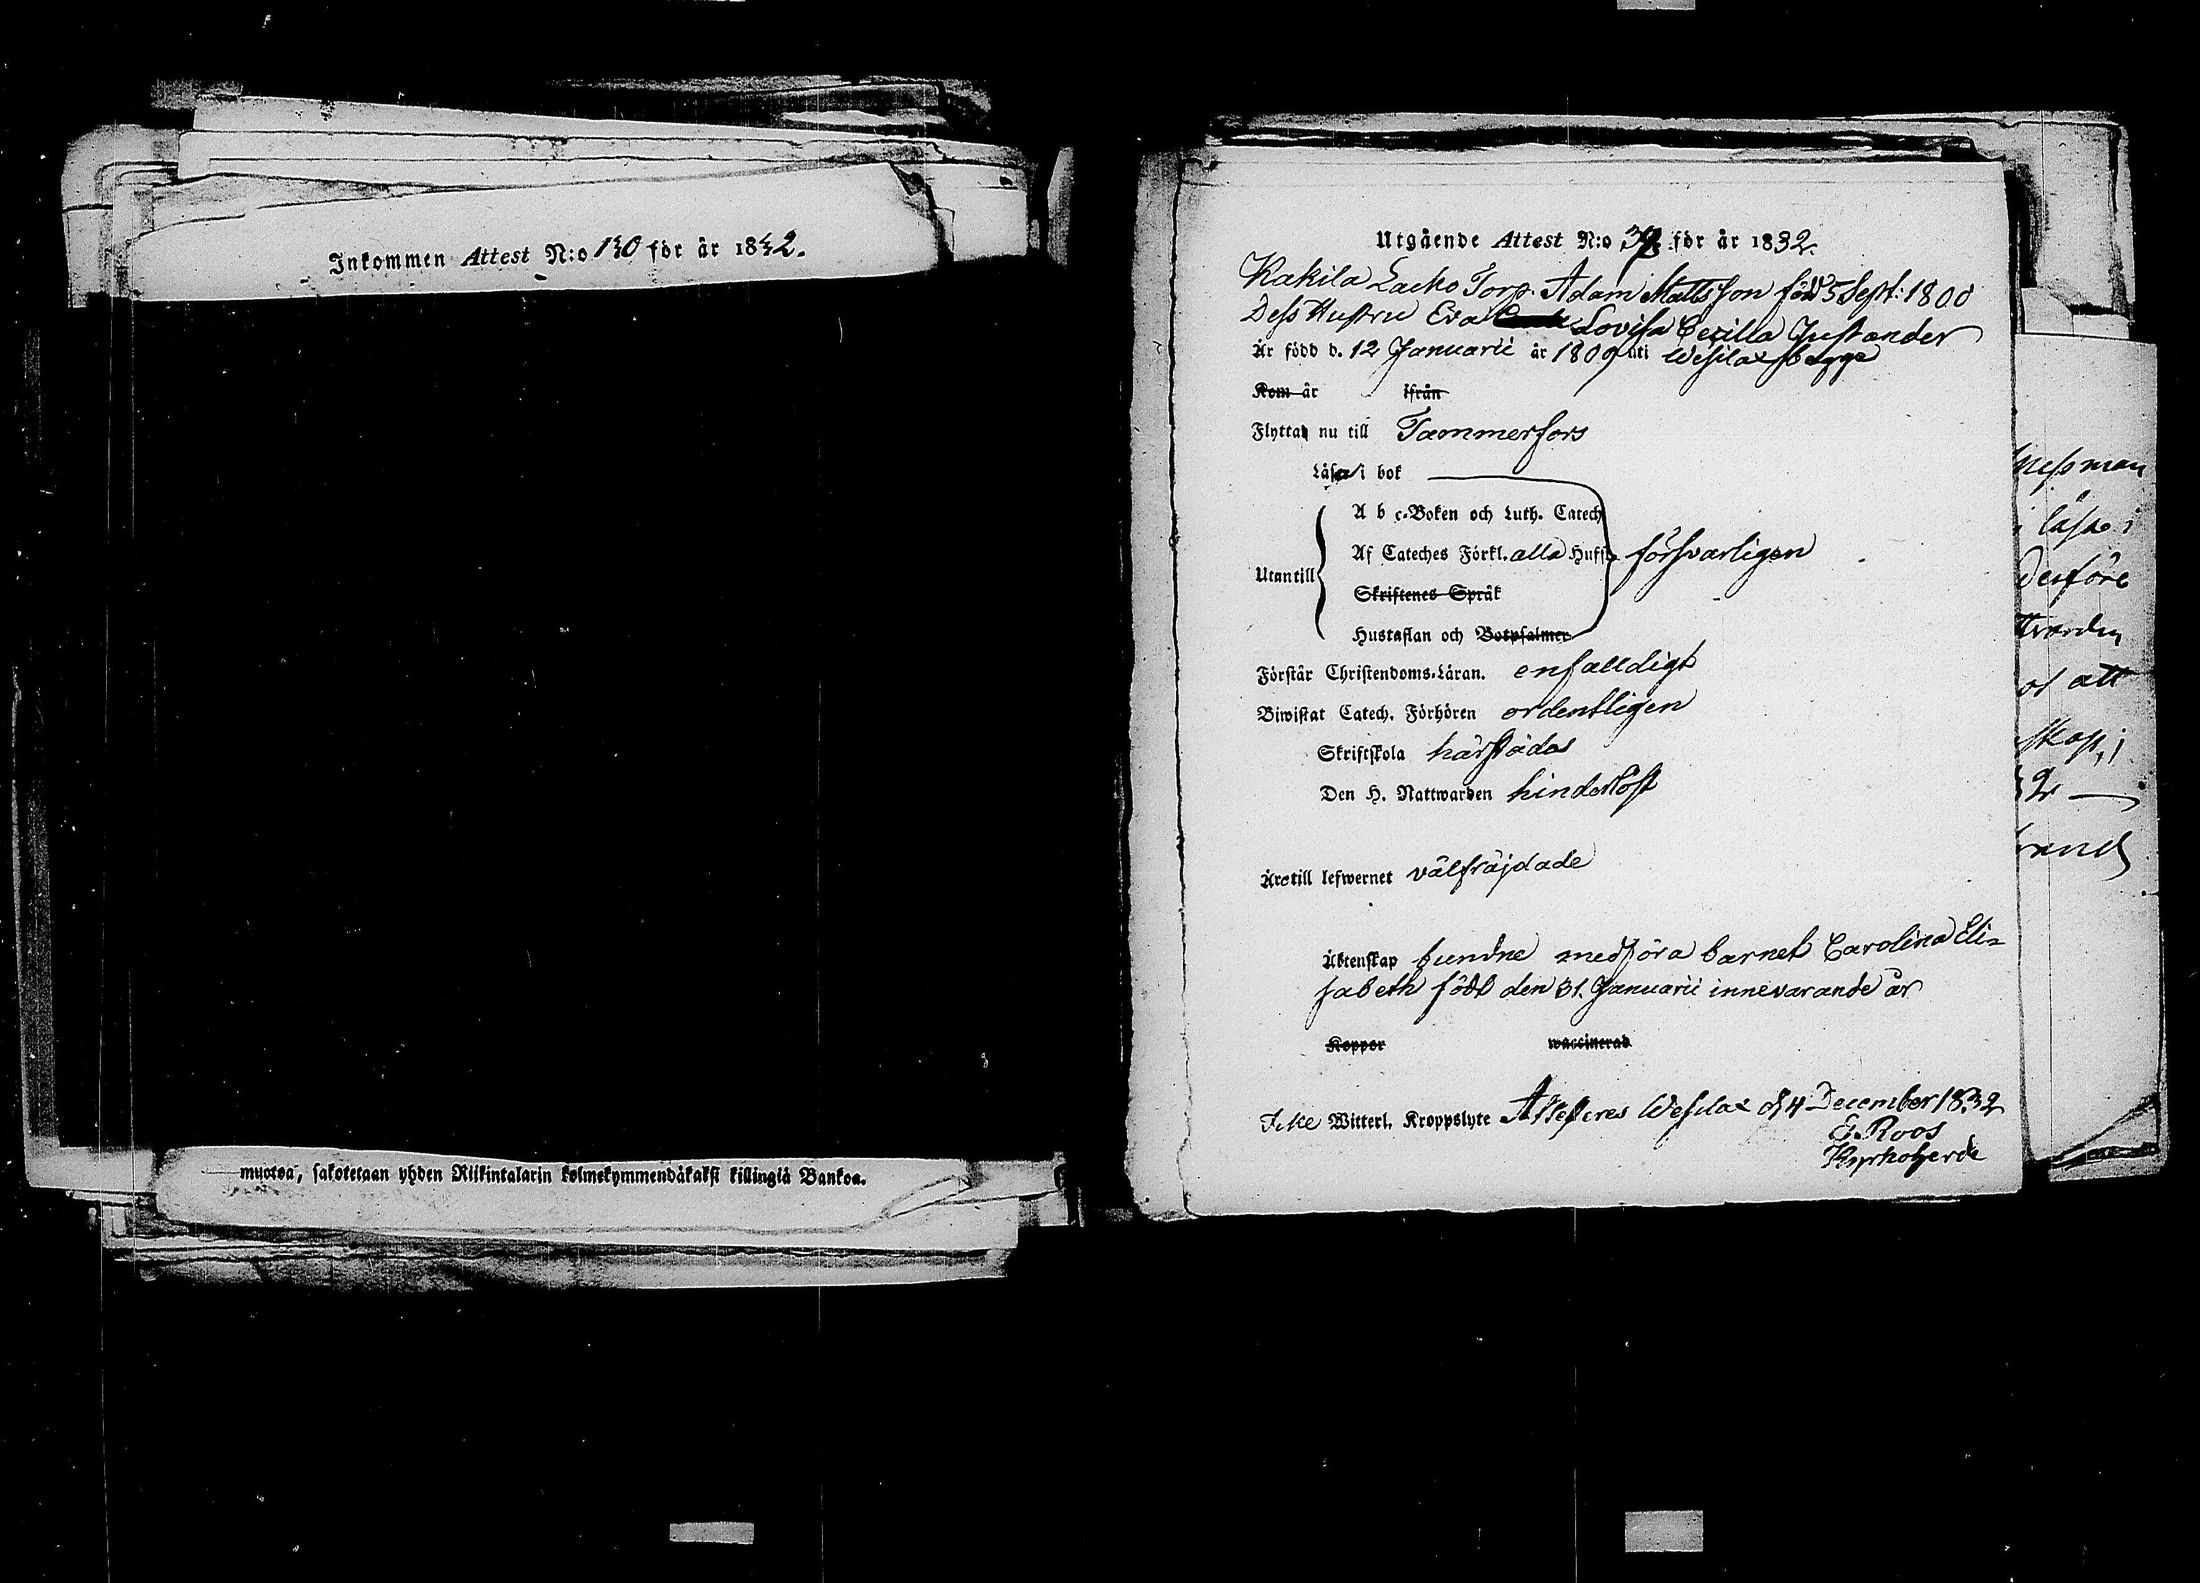 Inkommen Attest N:o 130 för år 1832.
muotoa, sakotetaan yhden Riikintalarin kolmekymmendäkaksi killingiä Bankoa.
Utgående Attest N:o för år 1832.
Kakila Lacko Torp. Adam Mattsson född 5 Sept: 1800
Dess Hustru Eva Lovisa Cecilla Justander
Är född d. 12 Januarii år 1809 uti Wesilax begge
Kom år ifrån
Flytta nu till Tammerfors
Läsa i bok
A b c-Boken och Luth. Catech
Af Cateches Förkl. alla Hufst. försvarligen
Utantill
Skriftenes Språk
Hustaflan och Botpsalmer
Förstår Christendoms-Läran. enfalldigt
Biwistat Catech. Förhören ordentligen
Skriftskola härstädes
Den H. Nattwarden hinderlöst
Äro till lefwernet välfräjdade
Äktenskap bundne medföra barnet Carolina Eli=
sabeth född den 31. Januarii innevarande år
Koppor waccinerad
Icke Witterl. Kroppslyte Attesteres Wesilax d 4 December 1832
E. Roos
Kyrkoherde
läsa i
att
2